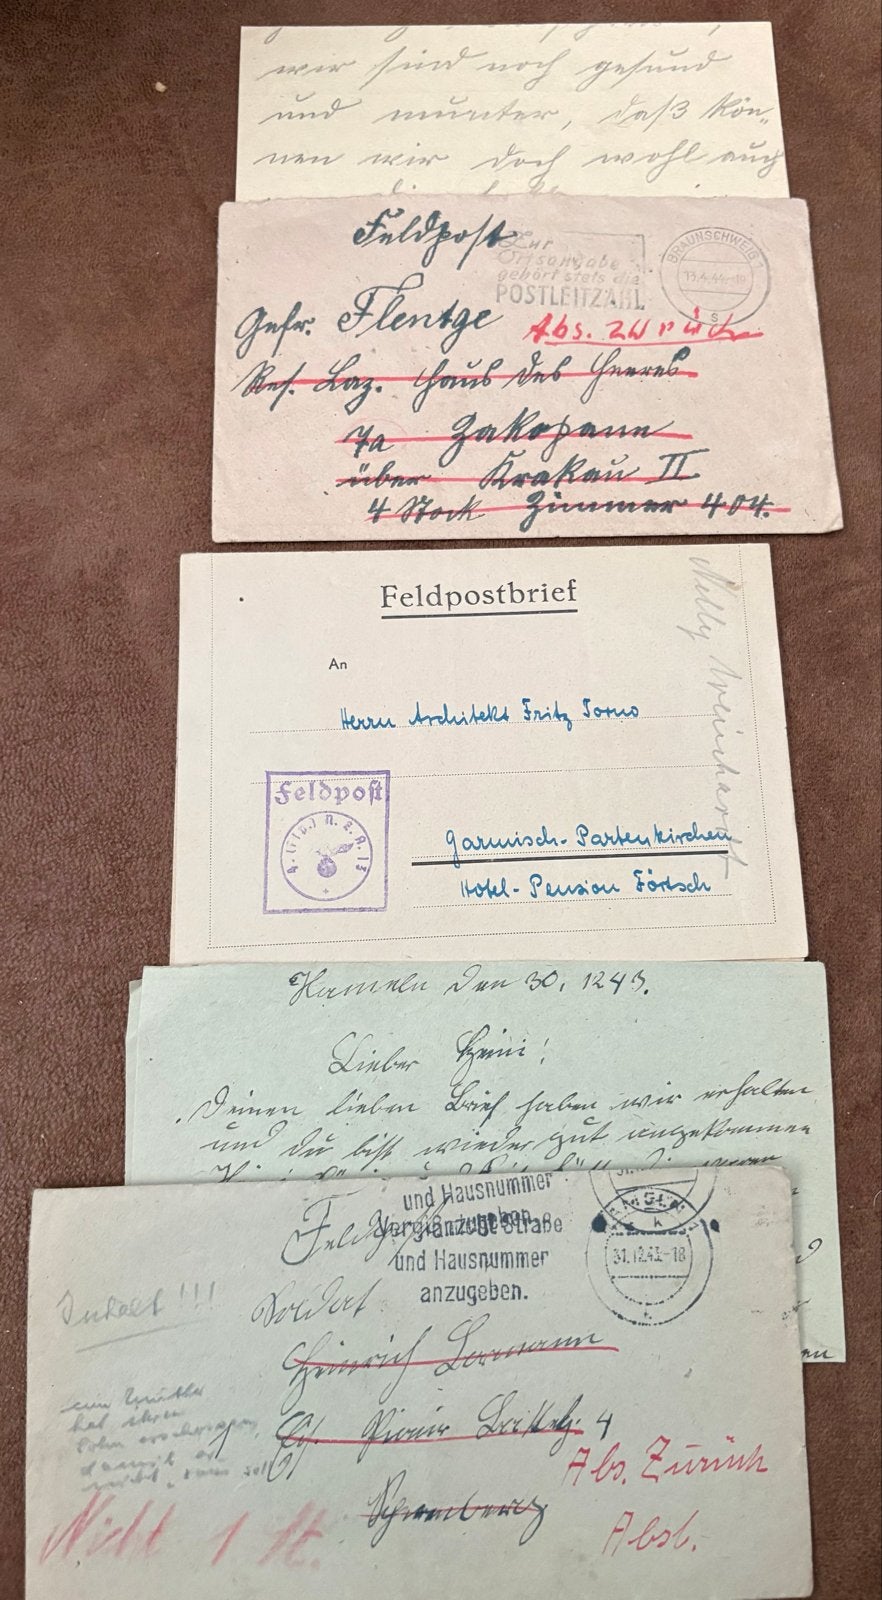 wir sind noch gesund
und munter, daß kön„
nen wir doch wohl auch
Feldpost
Zur
Ortsangabe
gehört stets die
POSTLEITZAHL
BRAUNSCHWEIG 1
13.4.44.-19
s
Gefr. Flentge
Abs. zurück
Res. Laz. Haus des Heeres
7a Zakopane
über Krakau II
4 Stock Zimmer 404.
Feldpostbrief
An
Herrn Architekt Fritz Torno
Feldpost
Garmisch-Partenkirchen
Hotel-Pension Förtsch
Nelly
Hameln den 30. 1243.
Lieber Heini!
Deinen lieben Brief haben wir erhalten
und du bist wieder gut angekommen
und Hausnummer
anzugeben.
Feldpost
Vergiß nicht Straße
und Hausnummer
anzugeben.
31.12.43-18
k
Inhalt!!!
Soldat
Heinrich
4
eine Mutter
hat ihren
Sohn
damit er
nicht
Abs. Zurück
Nicht
Abs.